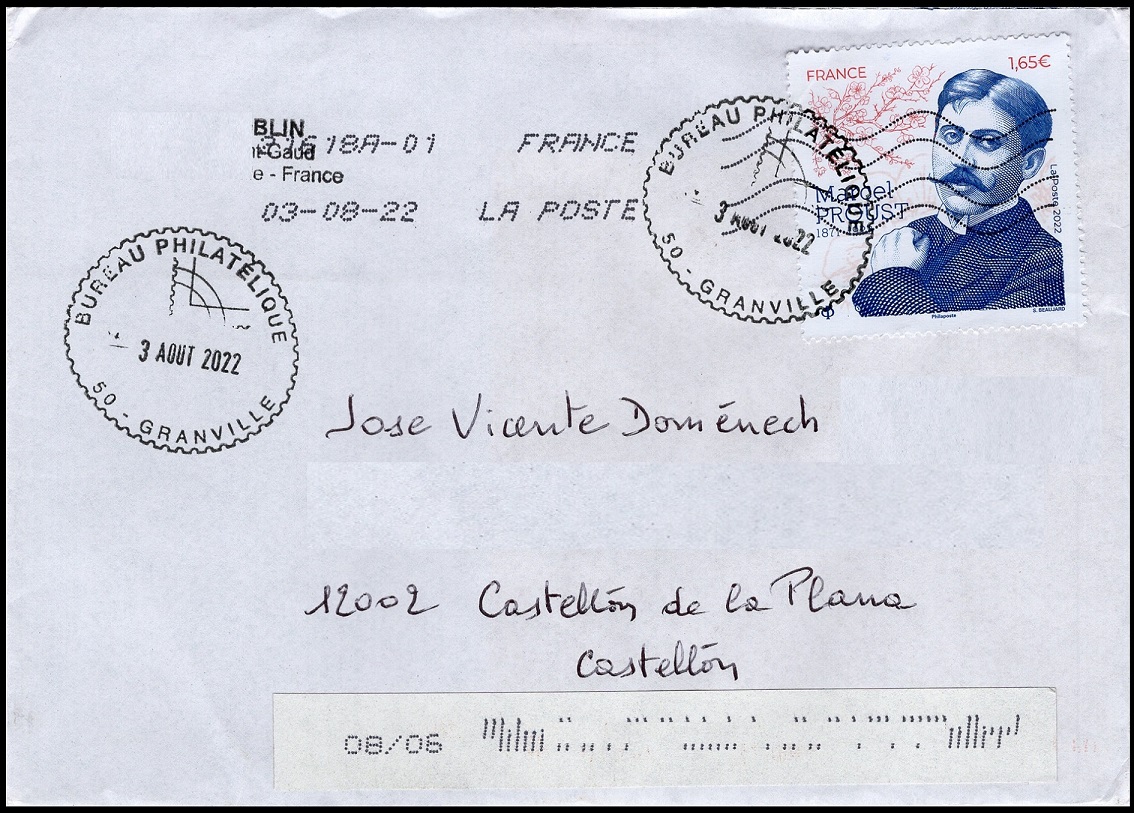 FRANCE 1,65€
Marcel
PROUST
La Poste 2022
Philaposte
S. BEAUJARD
BLIN
18A-01 FRANCE
e - France
03-08-22 LA POSTE
BUREAU PHILATÉLIQUE
3 AOUT 2022
50 - GRANVILLE
BUREAU PHILATÉLIQUE
3 AOUT 2022
50 - GRANVILLE
Jose Vicente Doménech
12002 Castellón de la Plana
Castellón
08/06